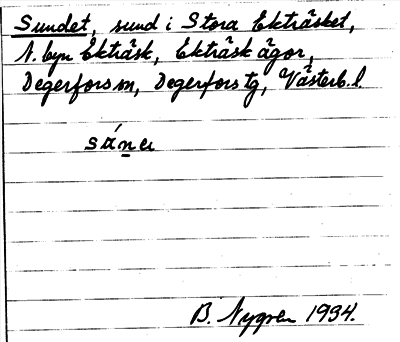 Sundet, sund i Stora Ekträsket,
N. byn Ekträsk, Ekträsk ägor,
Degerfors sn, Degerfors tg, Västerb. l.
B. Nygren 1934.